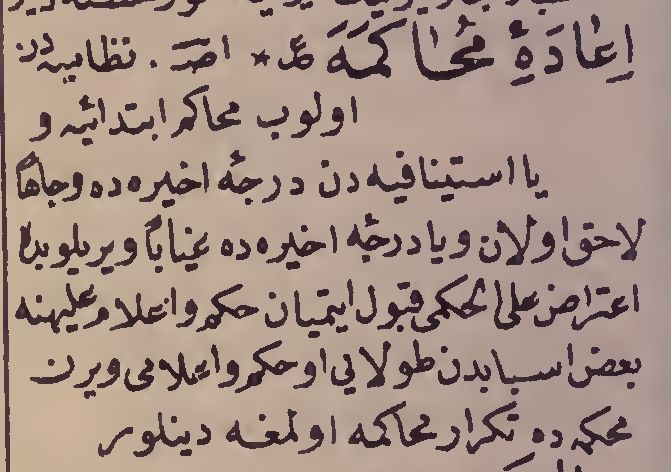 اعادۀ محاكمه ع * اصـ . نظاميه‌دن
اولوب محاكم ابتدائيه و
يا استينافيه دن درجۀ اخيره ده وجاهاً
لاحق اولان ويا درجۀ اخيره ده غياباً ويريلوبده
اعتراض على الحكمى قبول ايتميان حكم واعلام عليهنه
بعض اسبابدن طولايى او حكم واعلامى ويرن
محكمه ده تكرار محاكمه اولمغه دينلور